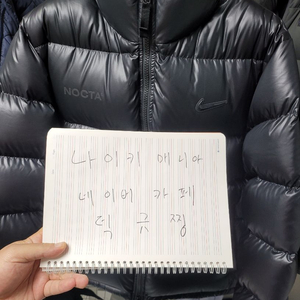 NOCTA
나이키 매니아
네이버 카페
떡 쿠 찡